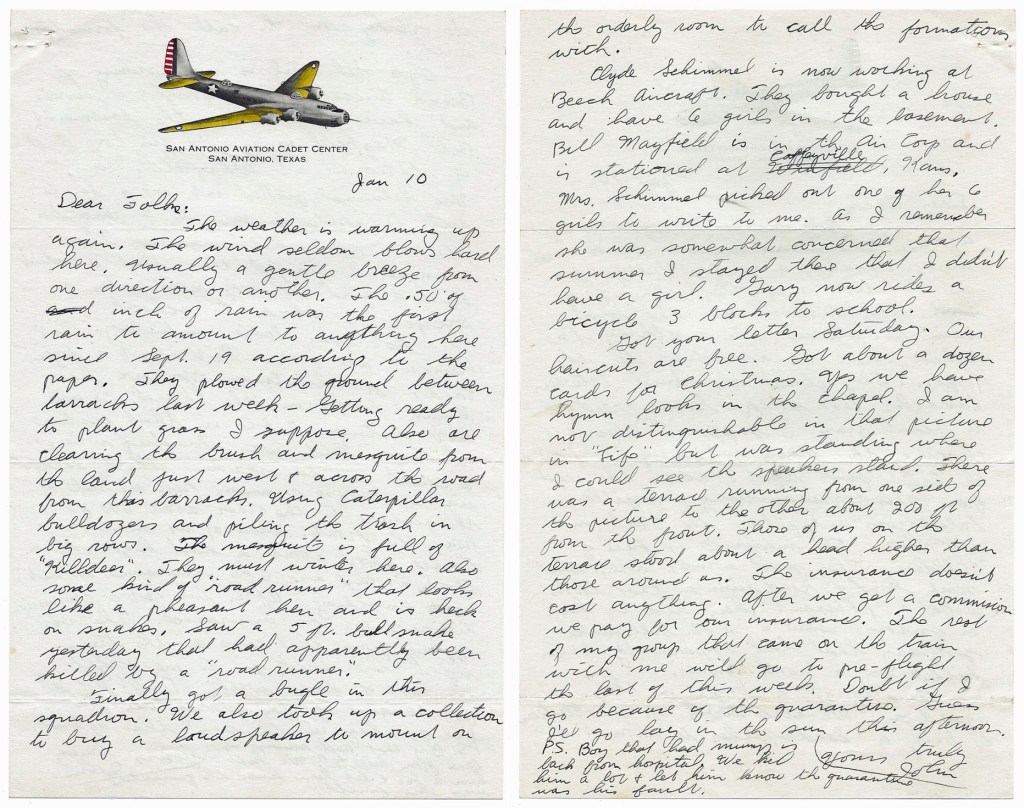 SAN ANTONIO AVIATION CADET CENTER
SAN ANTONIO, TEXAS
Jan 10
Dear Folks:
The weather is warming up
again. The wind seldom blows hard
here. Usually a gentle breeze from
one direction or another. The .50 of
and inch of rain was the first
rain to amount to anything here
since Sept. 19 according to the
paper. They plowed the ground between
barracks last week - Getting ready
to plant grass I suppose. Also are
clearing the brush and mesquite from
the land just west & across the road
from this barracks. Using Caterpillar
bulldozers and piling the trash in
big rows. The mesquite is full of
"Killdeer". They must winter here. Also
some kind of "road runner" that looks
like a pheasant hen and is heck
on snakes. Saw a 5 ft. bull snake
yesterday that had apparently been
killed by a "road runner".
Finally got a bugle in this
squadron. We also took up a collection
to buy a loudspeaker to mount on
the orderly room to call the formations
with.
Clyde Schimmel is now working at
Beech Aircraft. They bought a house
and have 6 girls in the basement.
Bill Mayfield is in th Air Corp and
Coffeyville
is stationed at Winfield, Kans.
Mrs. Schimmel picked out one of her 6
girls to write to me. As I remember
she was somewhat concerned that
summer I stayed there that I didn't
have a girl. Gary now rides a
bicycle 3 blocks to school.
Got your letter Saturday. Our
haircuts are free. Got about a dozen
cards for Christmas. Yes we have
hymn books in the chapel. I am
not distinguishable in that picture
in "Life" but was standing where
I could see the speakers stand. There
was a terrace running from one side of
the picture to the other about 200 ft
from the front. Those of us on the
terrace stood about a head higher than
those around us. The insurance doesn't
cost anything. After we get a commision
we pay for our insurance. The rest
of my group that came on the train
with me will go to pre-flight
the last of this week. Doubt if I
go because of the quarantine. Guess
I'll go lay in the sun this afternoon.
Yours truly
John
P.S. Boy that had mumps is
back from hospital. We kid
him a lot & let him know the quarantine
was his fault.